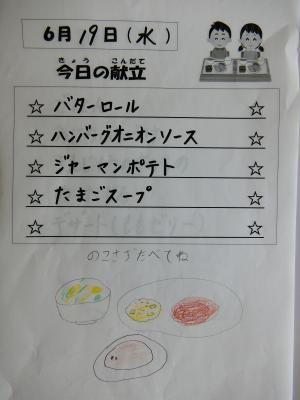 6月19日(水)
きょう こんだて
今日の献立
☆ バターロール ☆
☆ ハンバーグオニオンソース ☆
☆ ジャーマンポテト ☆
☆ たまごスープ ☆
☆ ☆
のこさずたべてね